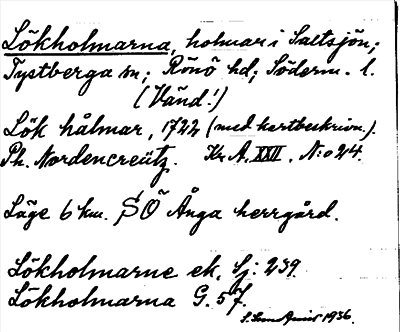 Lökholmarna, holmar i Saltsjön;
Tystberga sn; Rönö hd; Söderm. l.
(Vänd!)
Lök hålmar, 1722 (med kartbeskrivn.).
Ph. Nordencreütz. Kr. A. XXII, N:o 24.
Läge 6 km. S Ö Ånga herrgård.
Lökholmarne ek. Sj: 239.
Lökholmarna G. 57.
1936.